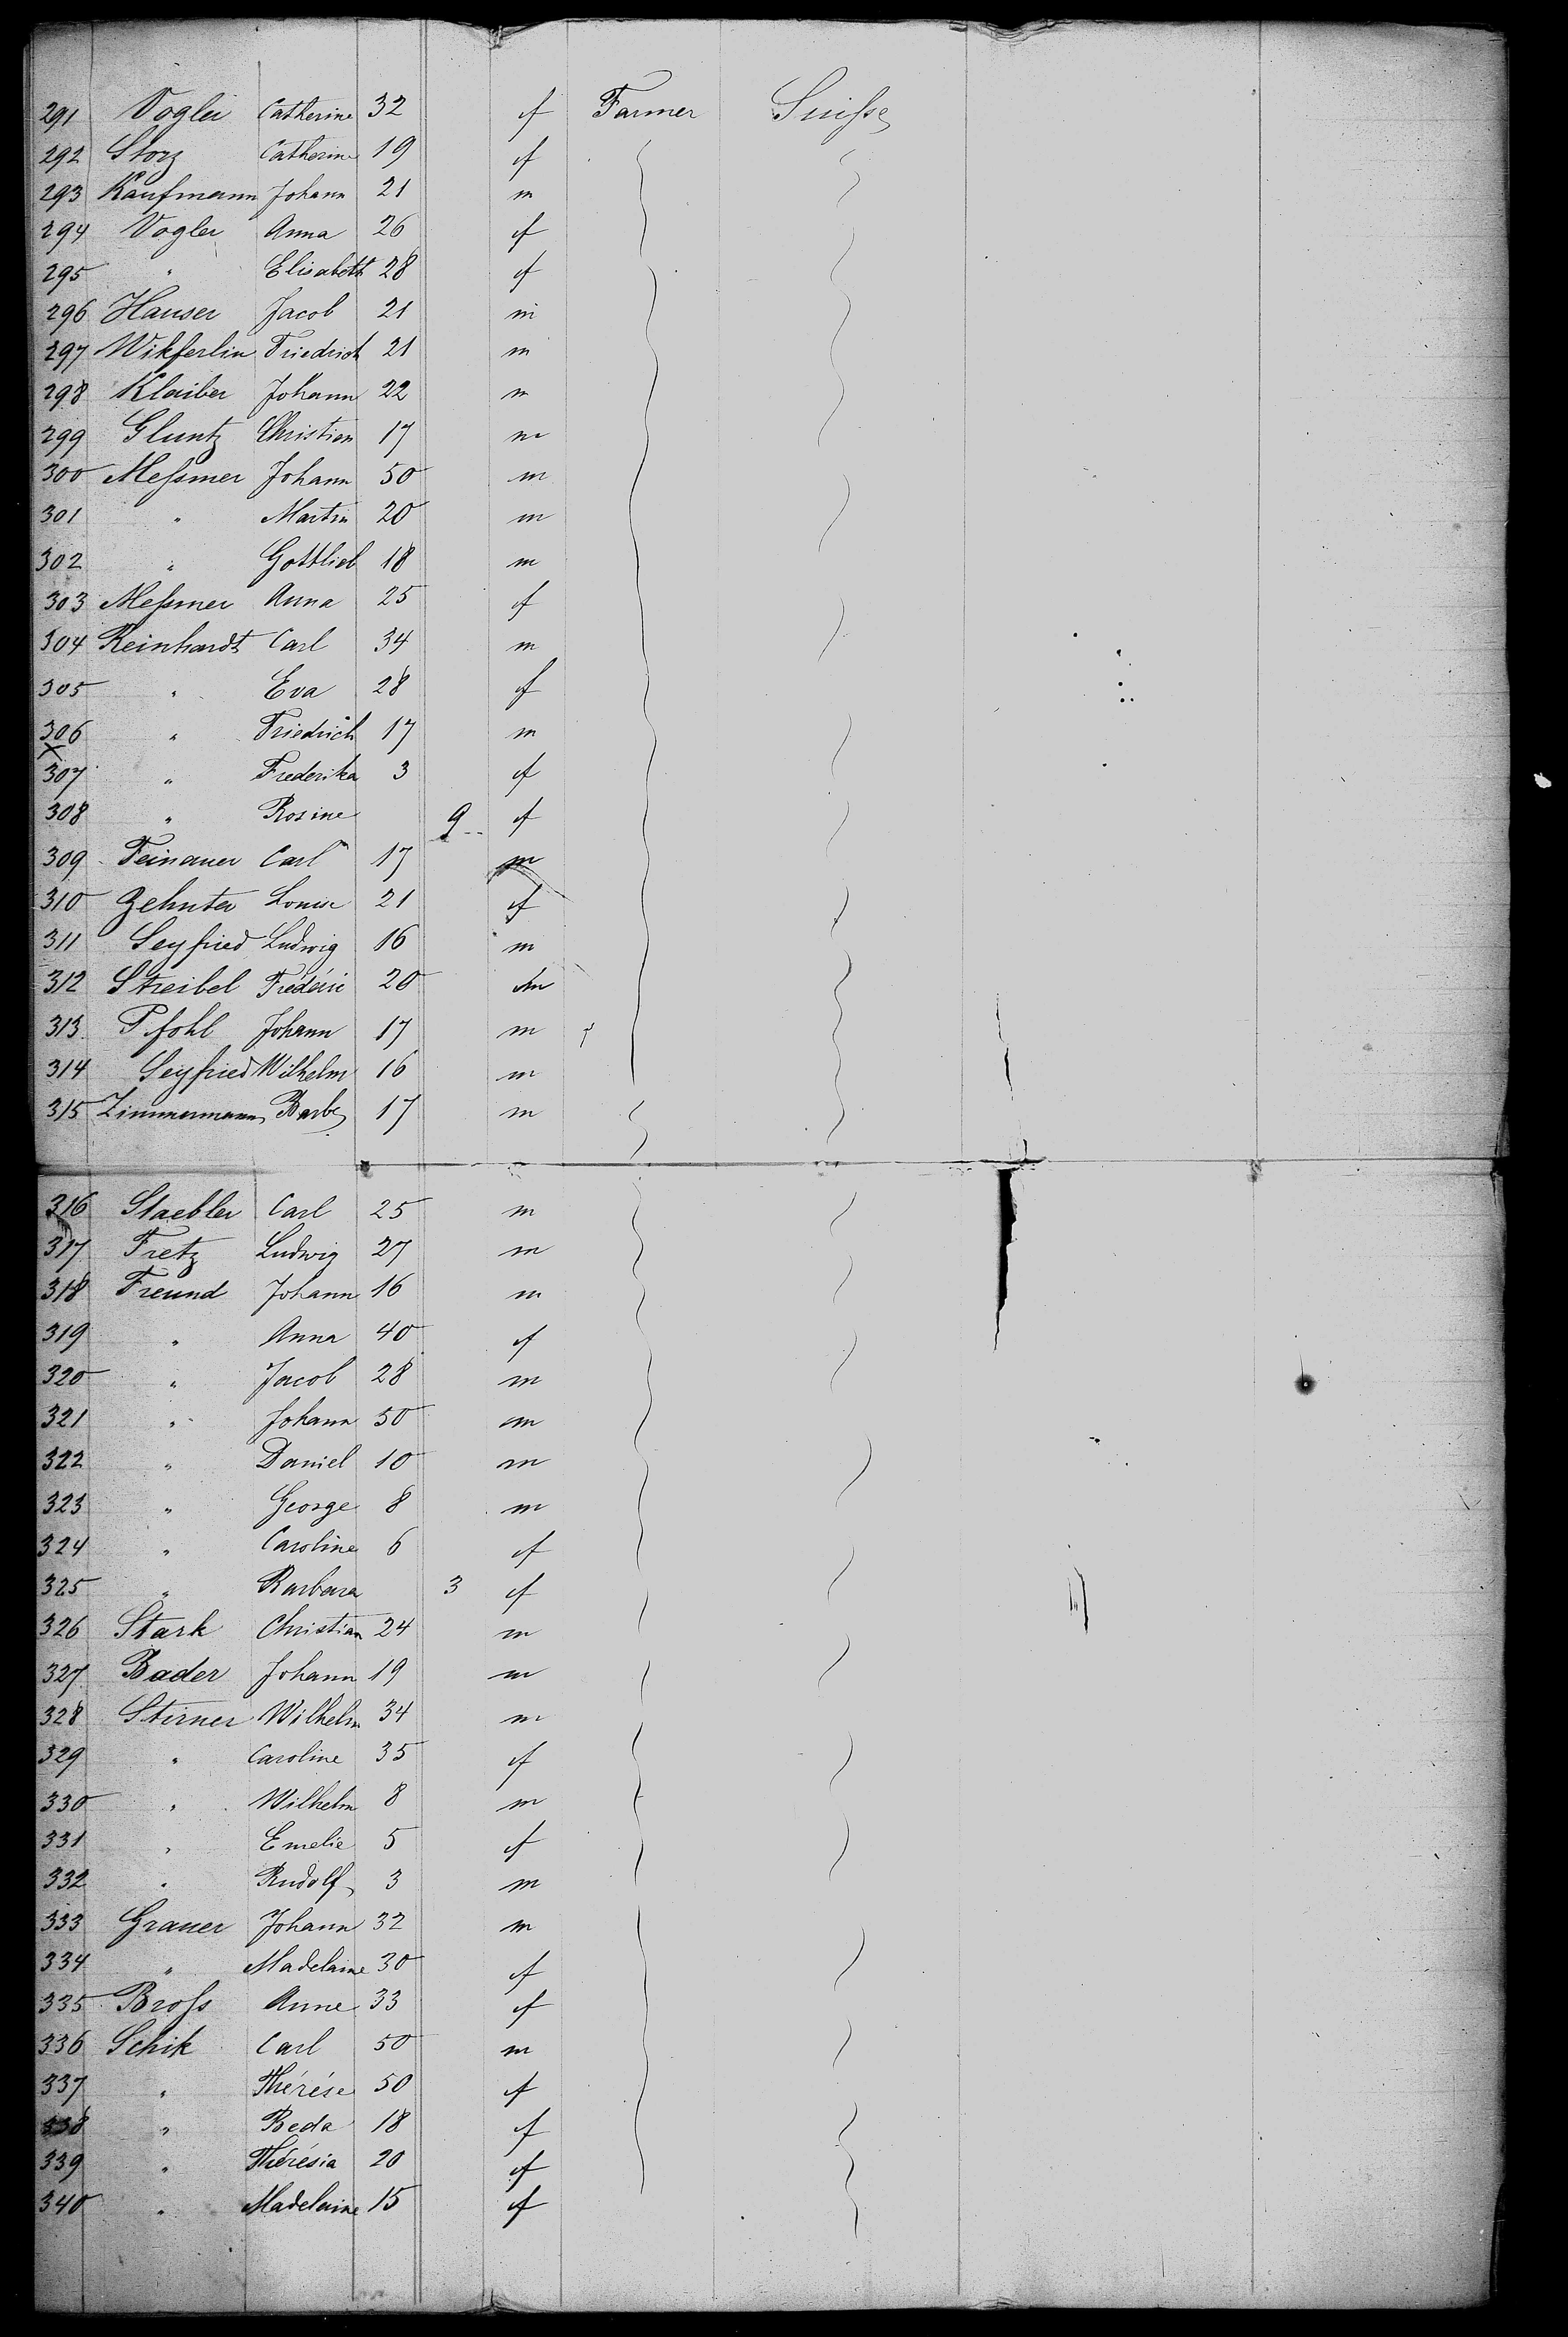 291 Vogler Catherine 32 f Farmer Suisse
292 Storz Catherine 19 f
293 Kaufmann Johann 21 m
294 Vogler Anna 26 f
295 " Elisabeth 28 f
296 Hauser Jacob 21 m
297 Wikferlin Friedrich 21 m
298 Klaiber Johann 22 m
299 Gluntz Christian 17 m
300 Meſsmer Johann 50 m
301 " Martin 20 m
302 " Gottlieb 18 m
303 Meſsmer Anna 25 f
304 Reinhardt Carl 34 m
305 " Eva 28 f
306 " Friedrich 17 m
307 " Frederika 3 f
308 " Rosine 9 f
309 Feinauer Carl 17 m
310 Zehnter Louise 21 f
311 Seyfried Ludwig 16 m
312 Streibel Fréderic 20 m
313 Pfohl Johann 17 m
314 Seyfried Wilhelm 16 m
315 Zimmermann Barbe 17 m
316 Staebler Carl 25 m
317 Fretz Ludwig 27 m
318 Freund Johann 16 m
319 " Anna 40 f
320 " Jacob 28 m
321 " Johann 50 m
322 " Daniel 10 m
323 " George 8 m
324 " Caroline 6 f
325 " Barbara 3 f
326 Stark Christian 24 m
327 Bader Johann 19 m
328 Stirner Wilhelm 34 m
329 " Caroline 35 f
330 " Wilhelm 8 m
331 " Emelie 5 f
332 " Rudolf 3 m
333 Grauer Johann 32 m
334 " Madelaine 30 f
335 Broſs Anne 33 f
336 Schik Carl 50 m
337 " Thérése 50 f
338 " Beda 18 f
339 " Thérésia 20 f
340 " Madelaine 15 f